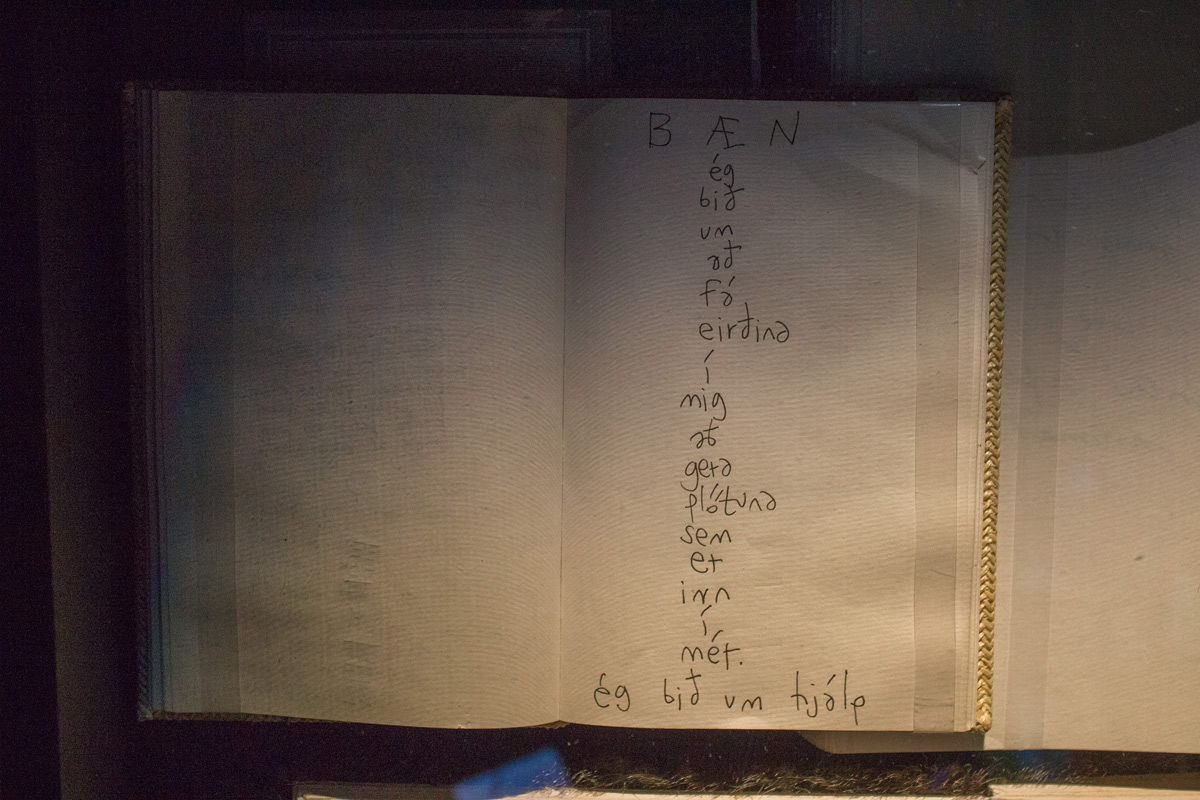 BÆN
ég
bið
um
að
fá
eirðina
í
mig
að
gera
plötuna
sem
er
inn
í
mér.
ég bið um hjálp